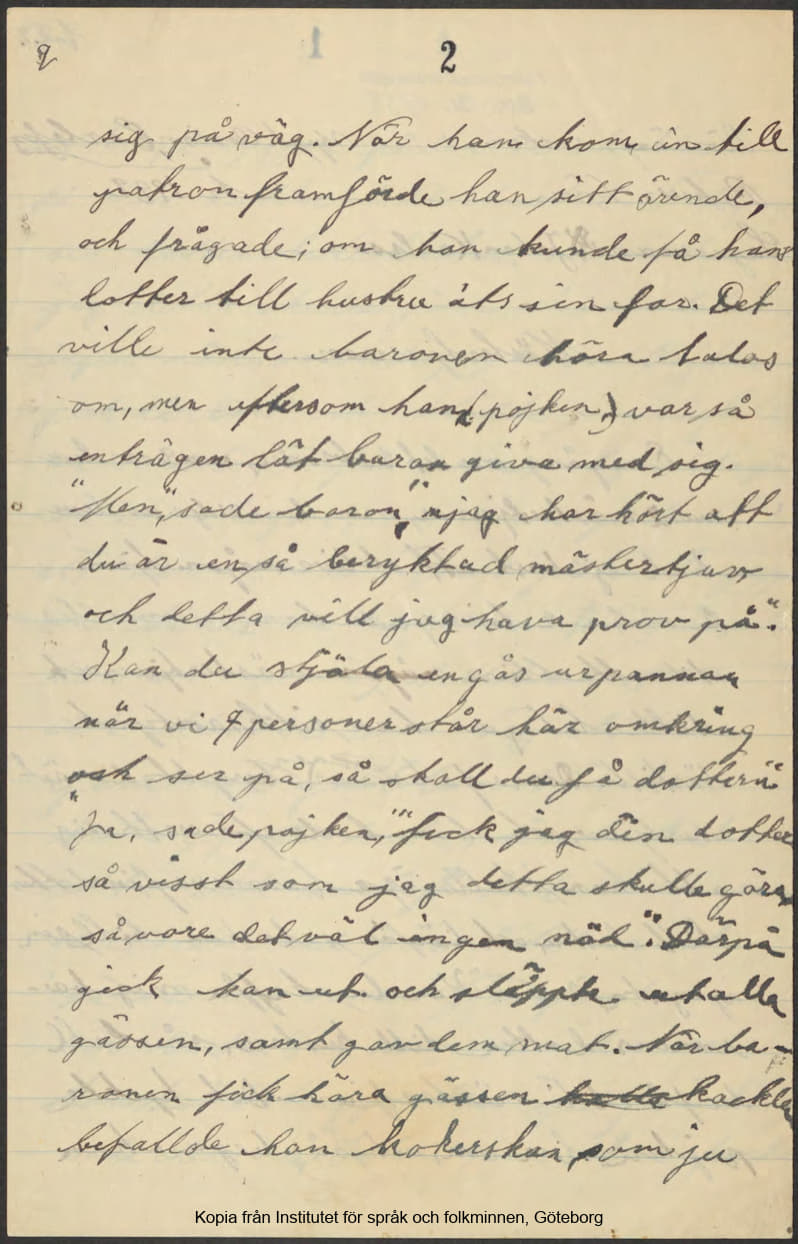 2
sig på väg. När han kom in till
patron framförde han sitt ärende,
och frågade; om han kunde få hans
dotter till hustru åt sin far. Det
ville inte baronen höra talas
om, men eftersom han (pojken) var så
enträgen lät baron giva med sig.
"Men", sade baron, "jag har hört att
du är en så beryktad mästertjuv
och detta vill jag hava prov på".
Kan du stjäla en gås ur pannan
när vi 7 personer står här omkring
och ser på, så skall du få dottern"
"Ja, sade pojken," "fick jag din dotter
så visst som jag detta skulle göra,
så vore det väl ingen nöd". Därpå
gick han ut och släppte ut alla
gässen, samt gav dem mat. När ba-
ronen fick höra gässen kackla
befallde han kokerskan, som ju
Kopia från Institutet för språk och folkminnen, Göteborg